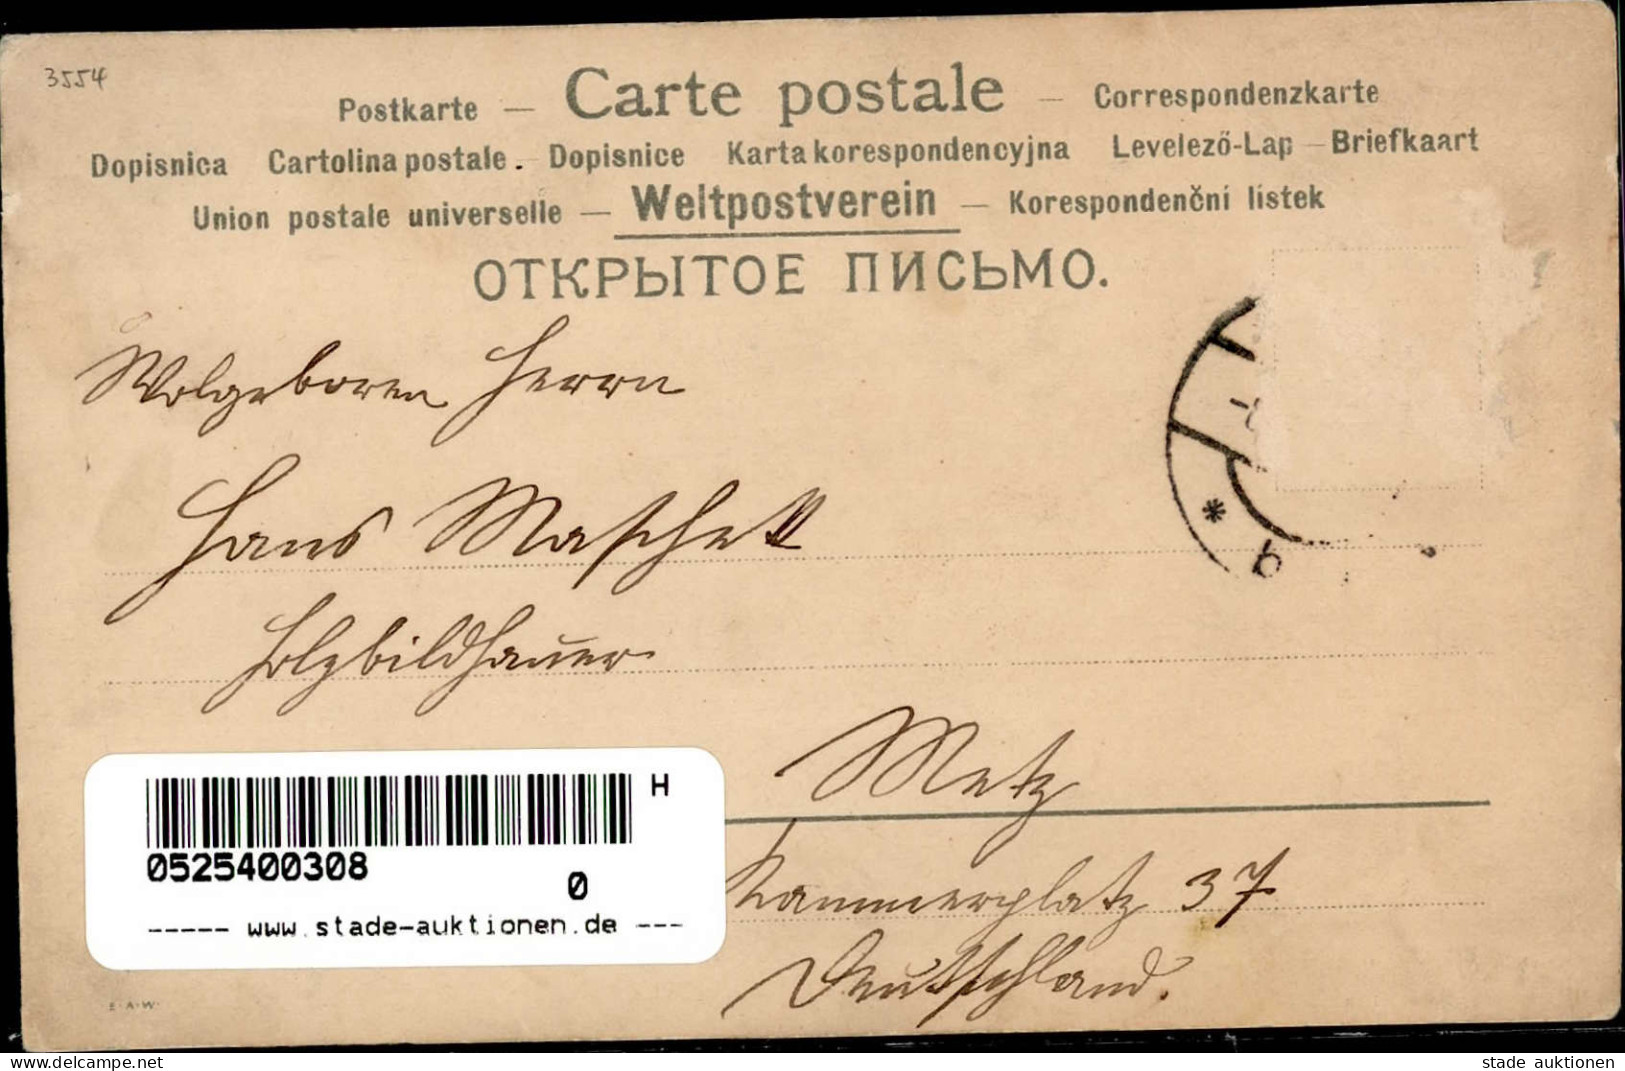 3554
Postkarte — Carte postale — Correspondenzkarte
Dopisnica Cartolina postale. Dopisnice Karta korespondencyjna Levelező-Lap — Briefkaart
Union postale universelle — Weltpostverein — Korespondenční listek
ОТКРЫТОЕ ПИСЬМО.
Wolgeboren Herrn
Hans
Holzbildhauer
Metz
Kammerplatz 37
Deutschland.
* b
H
0525400308
0
----- www.stade-auktionen.de ---
E.A.W.
delcampe.net
stade auktionen